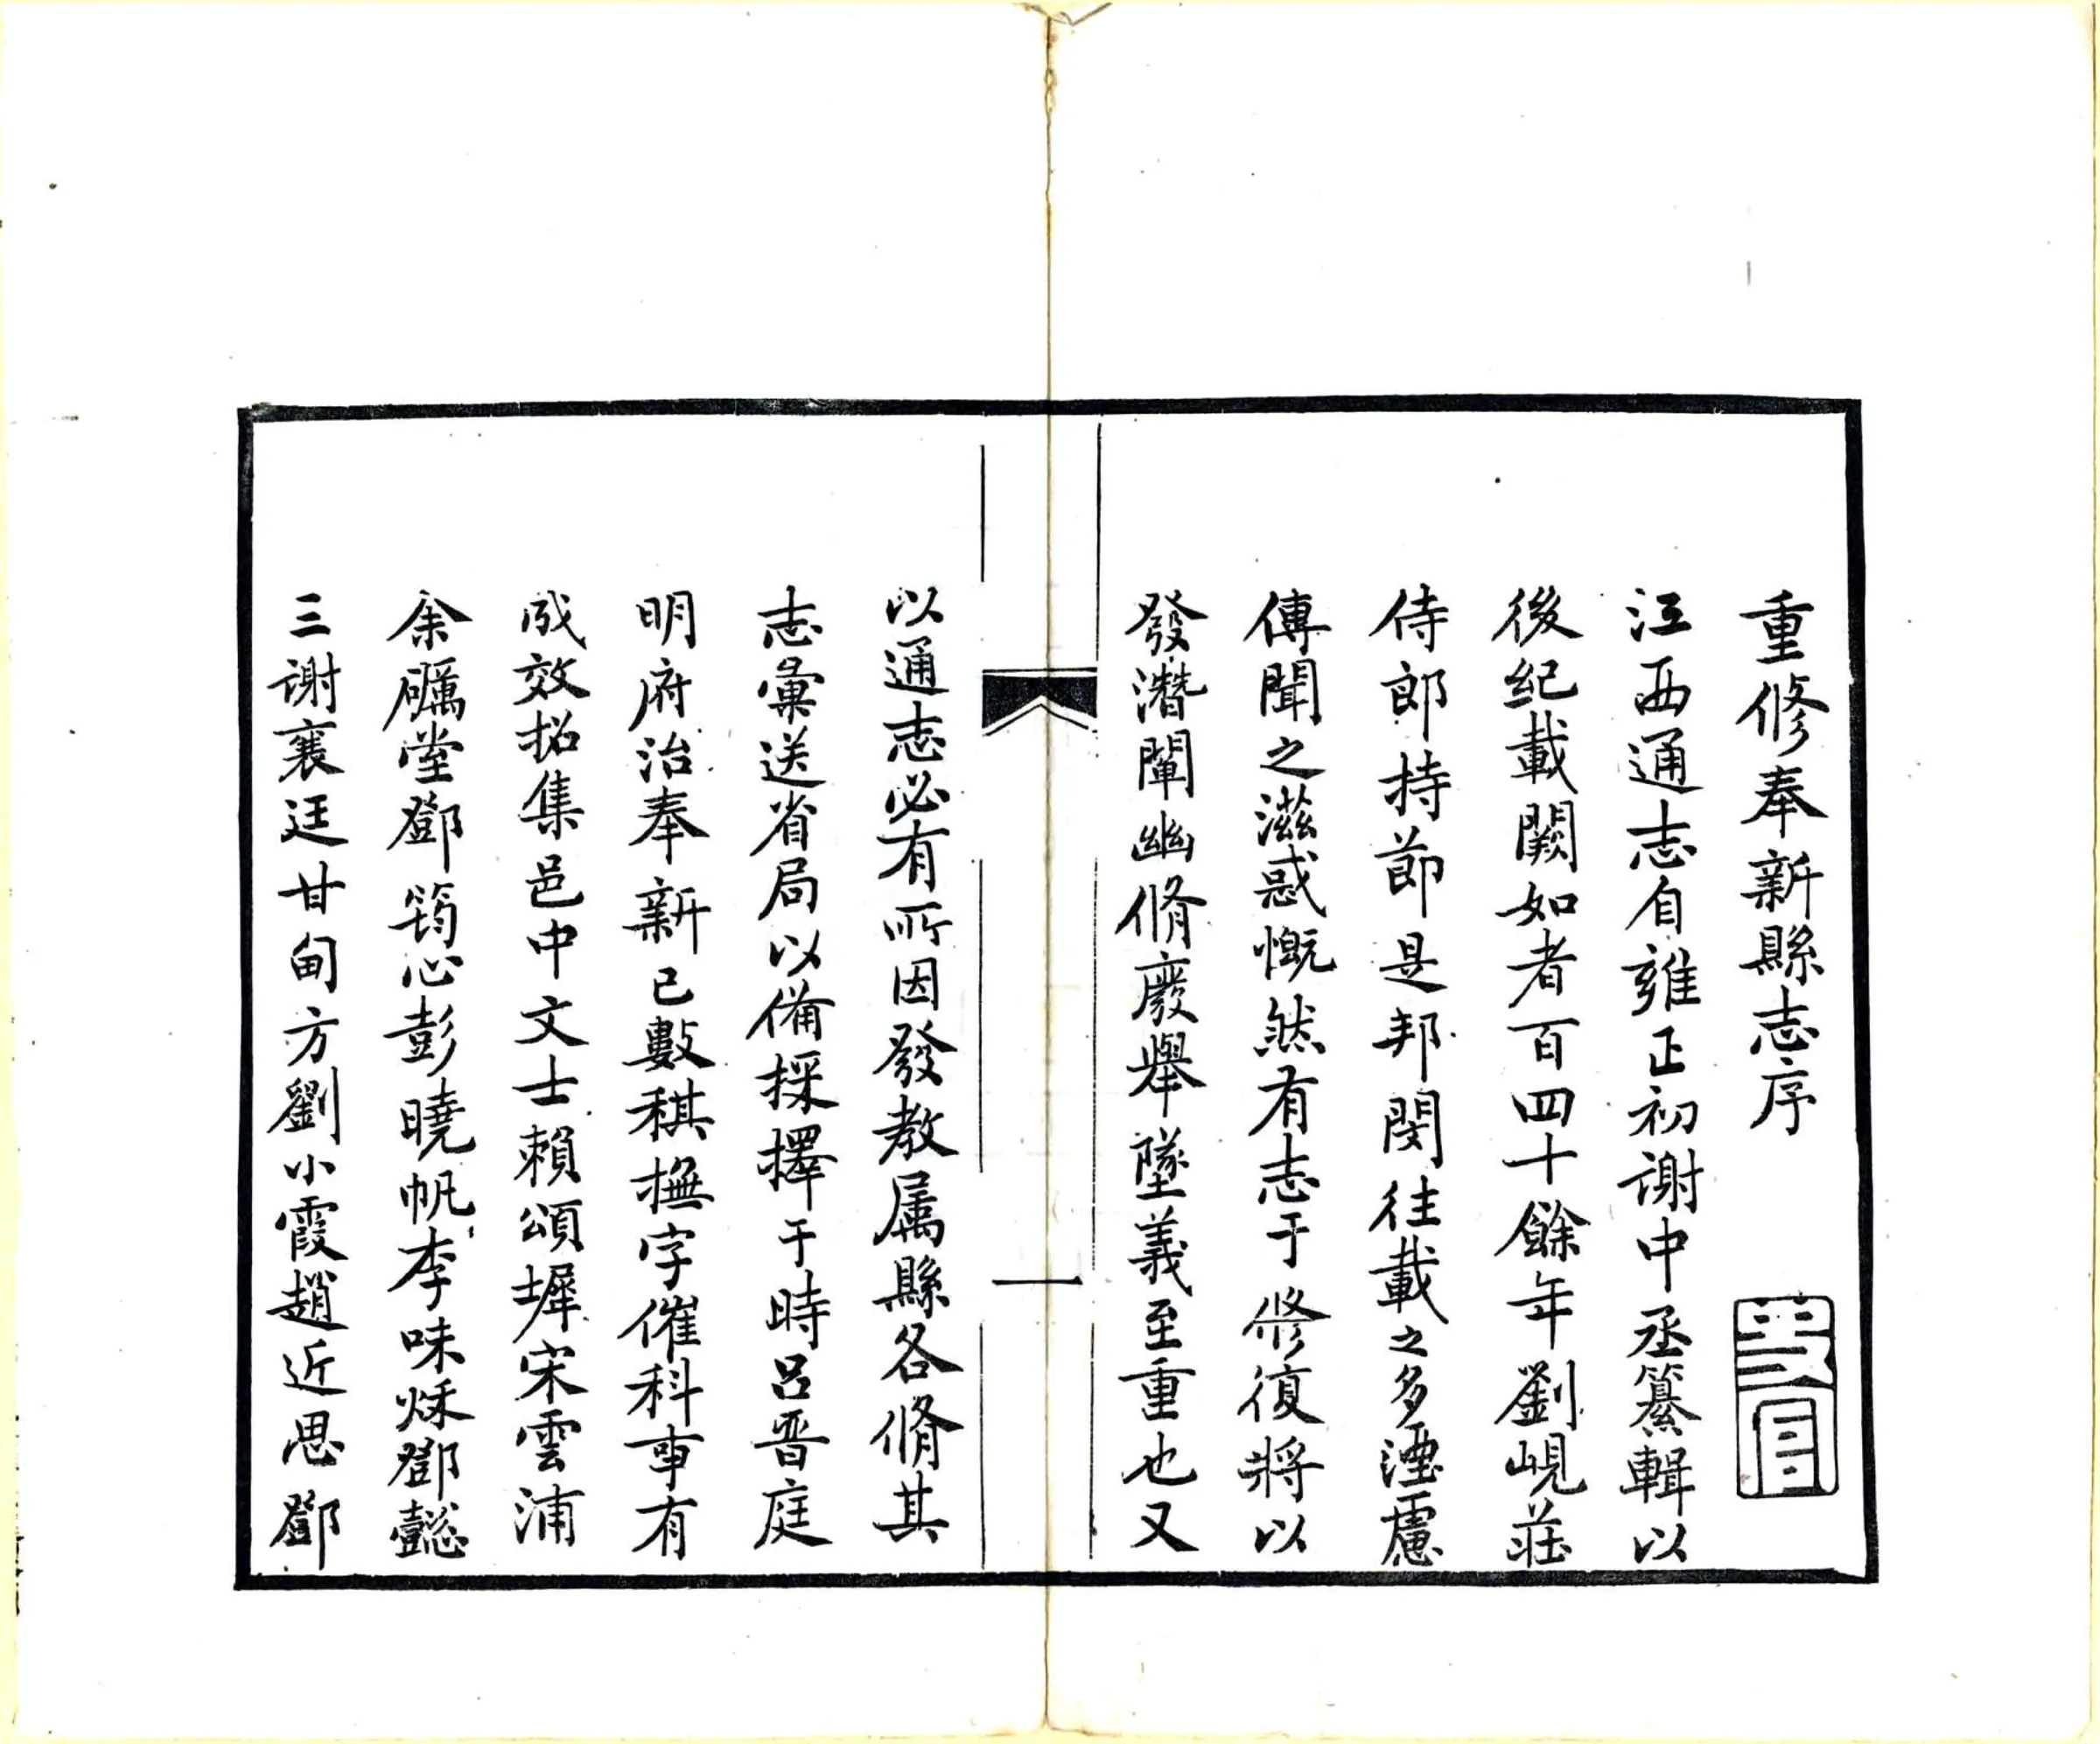 重修奉新縣志序
江西通志自雍正初謝中丞纂輯以
後紀載闕如者百四十餘年劉峴莊
侍郎持節是邦閔往載之多湮慮
傳聞之滋惑慨然有志于修復將以
發潛闡幽脩廢舉墜義至重也又
一
以通志必有所因發教属縣各脩其
志彙送省局以備採擇于時呂晋庭
明府治奉新已數稘撫字催科事有
成效招集邑中文士賴頌墀宋雲浦
余礪堂鄧筠心彭曉帆李味秌鄧懿
三謝襄廷甘甸方劉小霞趙近思鄧